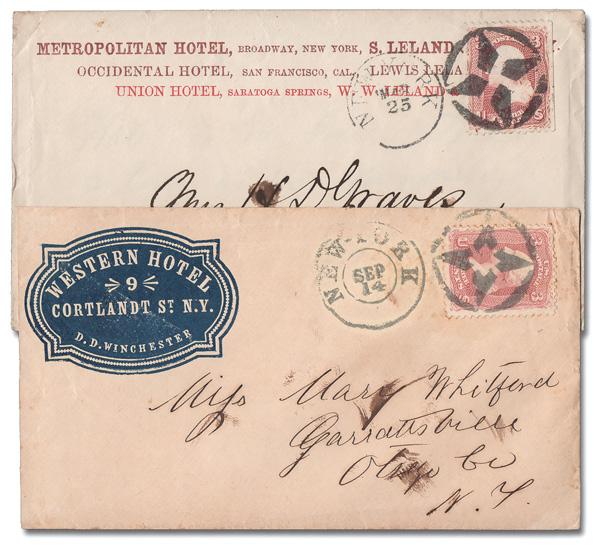 METROPOLITAN HOTEL, BROADWAY, NEW YORK, S. LELAND
OCCIDENTAL HOTEL, SAN FRANCISCO, CAL. LEWIS LELA
UNION HOTEL, SARATOGA SPRINGS, W. W. LELAND
NEW YORK
MAR
25
D Graves
WESTERN HOTEL
9
CORTLANDT ST. N.Y.
D. D. WINCHESTER
NEW-YORK
SEP
14
3
Miss Mary Whitford
Garrattsville
Otsego Co
N. Y.